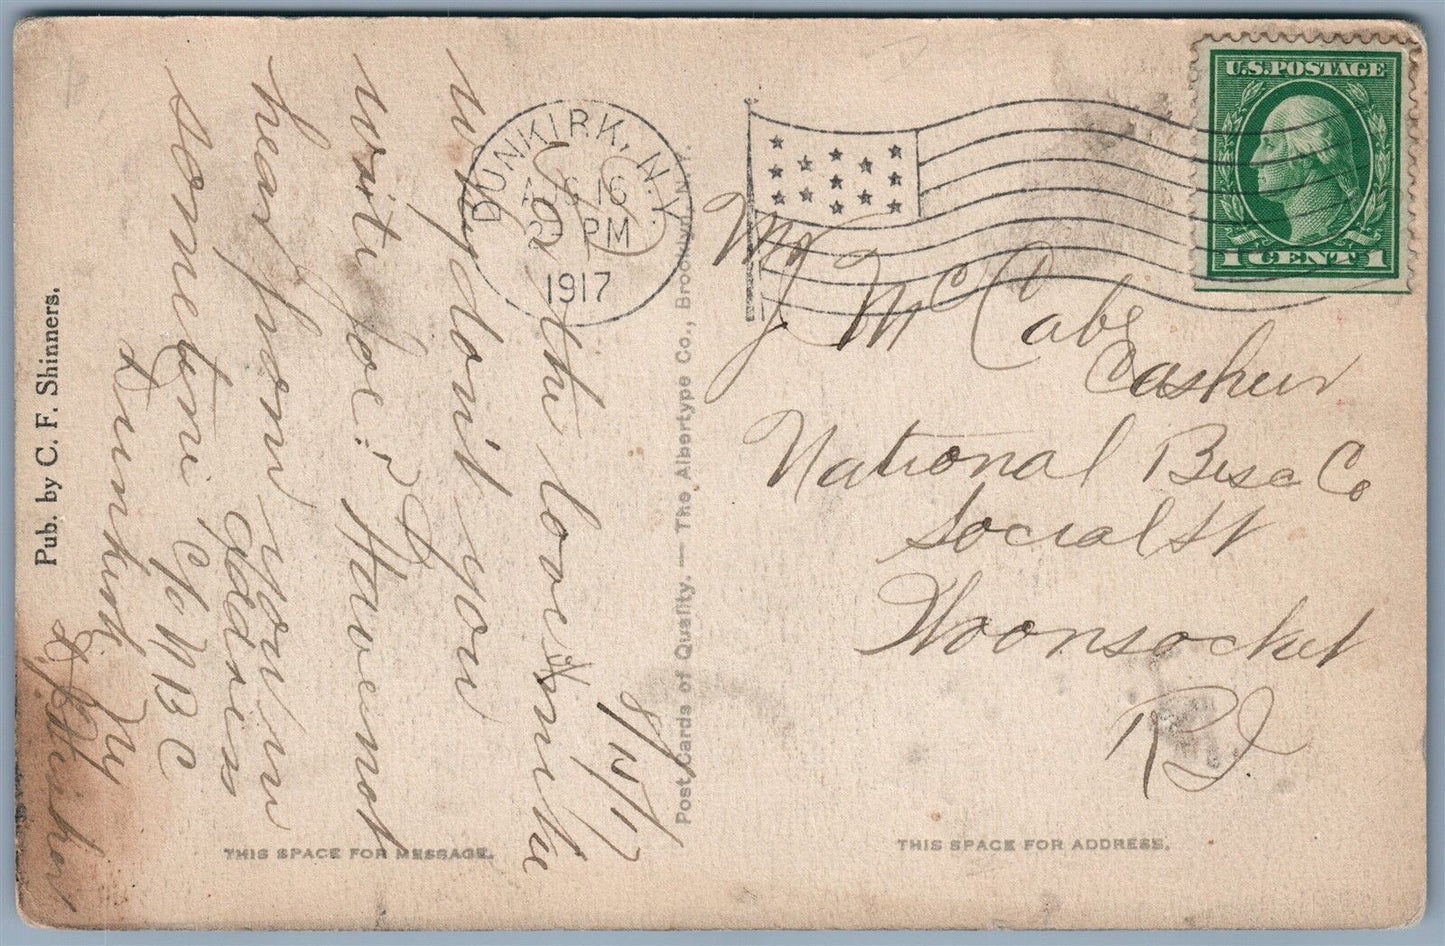 Pub. by C. F. Shinners.
8/15/17
the
Why don't you
write Joe? Have not
hear from you in
sometime
Address
c/o N B C
Dunkirk NY
THIS SPACE FOR MESSAGE.
Post Cards of Quality. — The Albertype Co., Brooklyn, N.Y.
DUNKIRK, N.Y.
AUG 16
PM
1917
U.S. POSTAGE
1 CENT 1
Mr
J. McCabe
Cashier
National Bisc Co
Social St
Woonsocket
RI
THIS SPACE FOR ADDRESS.